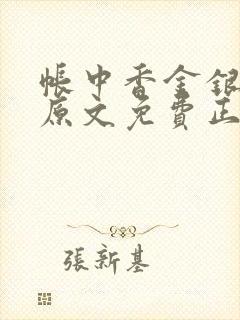 帳中香金銀
原文免費正
張新基